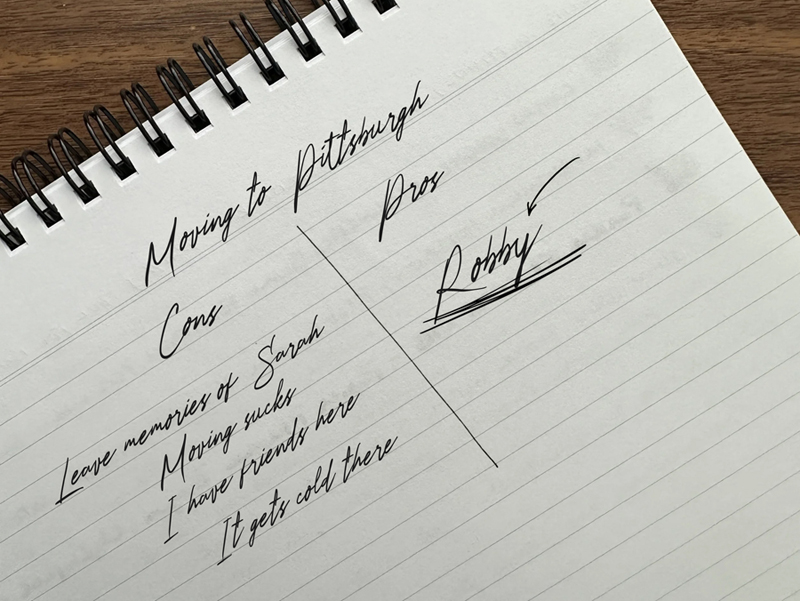 Moving to Pittsburgh
Cons
Leave memories of Sarah
Moving sucks
I have friends here
It gets cold there
Pros
Robby